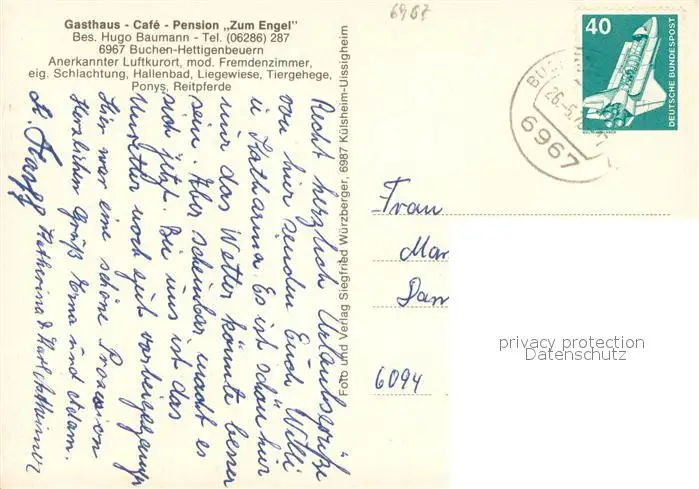 6967
Gasthaus - Café - Pension „Zum Engel"
Bes. Hugo Baumann - Tel. (06286) 287
6967 Buchen-Hettigenbeuern
Anerkannter Luftkurort, mod. Fremdenzimmer,
eig. Schlachtung, Hallenbad, Liegewiese, Tiergehege,
Ponys, Reitpferde
Recht herzlich Urlaubsgrüße
von hier senden Euch Willi
u Katharina. Es ist schön hier
nur das Wetter könnte besser
sein. Aber scheinbar macht es
sich jetzt. Bei uns ist das
noch gut vorbeigegangen
Hier war eine schöne Prozession
Herzlichen Gruß Erna und Adam.
Katharina & Karl
Foto und Verlag Siegfried Würzberger, 6987 Külsheim-Uissigheim
40
DEUTSCHE BUNDESPOST
6967
Frau
Mar
Dam
6094
privacy protection
Datenschutz